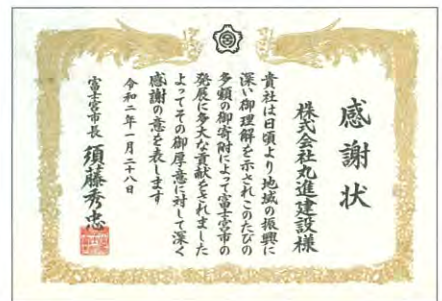 感謝状
株式会社丸進建設様
貴社は日頃より地域の振興に
深い御理解を示されこのたびの
多額の御寄附によって富士宮市の
発展に多大な貢献をされました
よってその御厚意に対して深く
感謝の意を表します
令和二年一月二十八日
富士宮市長 須藤秀忠